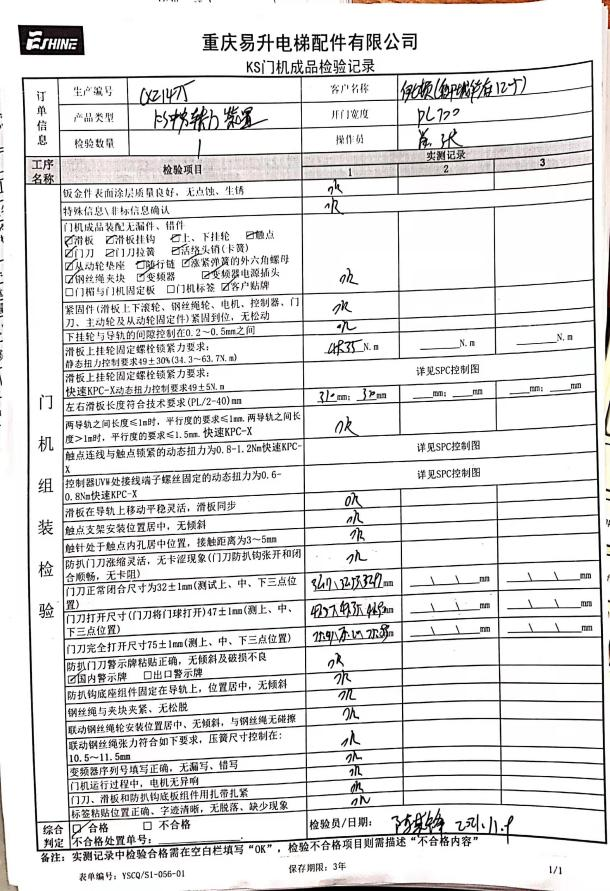 ESHINE
重庆易升电梯配件有限公司
KS门机成品检验记录
订单信息
生产编号
客户名称
产品类型
开门宽度 PL700
检验数量 1
操作员
工序名称 检验项目 实测记录
1 2 3
门机组装检验
钣金件表面涂层质量良好，无点蚀、生锈 ok
特殊信息\非标信息确认 ok
门机成品装配无漏件、错件
☑滑板 ☑滑板挂钩 ☑上、下挂轮 ☑触点
☑门刀 ☑门刀拉簧 ☑活络头销(卡簧)
☑从动轮垫座 ☑随行链 ☑涨紧弹簧的外六角螺母
☑钢丝绳夹块 ☑变频器 ☑变频器电源插头
□门楣与门机固定板 □门机标签 ☑客户贴牌 ok
紧固件(滑板上下滚轮、钢丝绳轮、电机、控制器、门
刀、主动轮及从动轮固定件)紧固到位，无松动 ok
下挂轮与导轨的间隙控制在0.2～0.5mm之间 ok
滑板上挂轮固定螺栓锁紧力要求:
静态扭力控制要求49±30%(34.3～63.7N.m) N.m N.m N.m
滑板上挂轮固定螺栓锁紧力要求:
快速KPC-X动态扭力控制要求49±5N.m 详见SPC控制图
左右滑板长度符合技术要求(PL/2-40)mm 310mm; mm mm; mm mm; mm
两导轨之间长度≤1m时，平行度的要求≤1mm.两导轨之间长
度>1m时，平行度的要求≤1.5mm.快速KPC-X ok
触点连线与触点锁紧的动态扭力为0.8-1.2Nm快速KPC-
X 详见SPC控制图
控制器UVW处接线端子螺丝固定的动态扭力为0.6-
0.8Nm快速KPC-X 详见SPC控制图
滑板在导轨上移动平稳灵活，滑板同步 ok
触点支架安装位置居中，无倾斜 ok
触针处于触点内孔居中位置，接触距离为3～5mm ok
防扒门刀涨缩灵活，无卡涩现象(门刀防扒钩张开和闭
合顺畅，无卡阻) ok
门刀正常闭合尺寸为32±1mm(测试上、中、下三点位
置) mm \ \ mm \ \ mm
门刀打开尺寸(门刀将门球打开)47±1mm(测上、中、
下三点位置) mm \ \ mm \ \ mm
门刀完全打开尺寸75±1mm(测上、中、下三点位置) mm \ \ mm \ \ mm
防扒门刀警示牌粘贴正确，无倾斜及破损不良
☑国内警示牌 □出口警示牌 ok
ok
防扒钩底座组件固定在导轨上，位置居中，无倾斜 ok
钢丝绳与夹块夹紧、无松脱 ok
联动钢丝绳轮安装位置居中、无倾斜，与钢丝绳无碰擦 ok
联动钢丝绳张力符合如下要求，压簧尺寸控制在:
10.5～11.5mm ok
变频器序列号填写正确，无漏写、错写 ok
门机运行过程中，电机无异响 ok
门刀、滑板和防扒钩底板组件用扎带扎紧 ok
标签粘贴位置正确、字迹清晰，无脱落、缺少现象 ok
综合判定
☑ 合格 □ 不合格
不合格处置单号:
检验员/日期: 2021.11.9
备注: 实测记录中检验合格需在空白栏填写"OK"，检验不合格项目则需描述"不合格内容"
表单编号: YSCQ/S1-056-01
保存期限: 3年
1/1